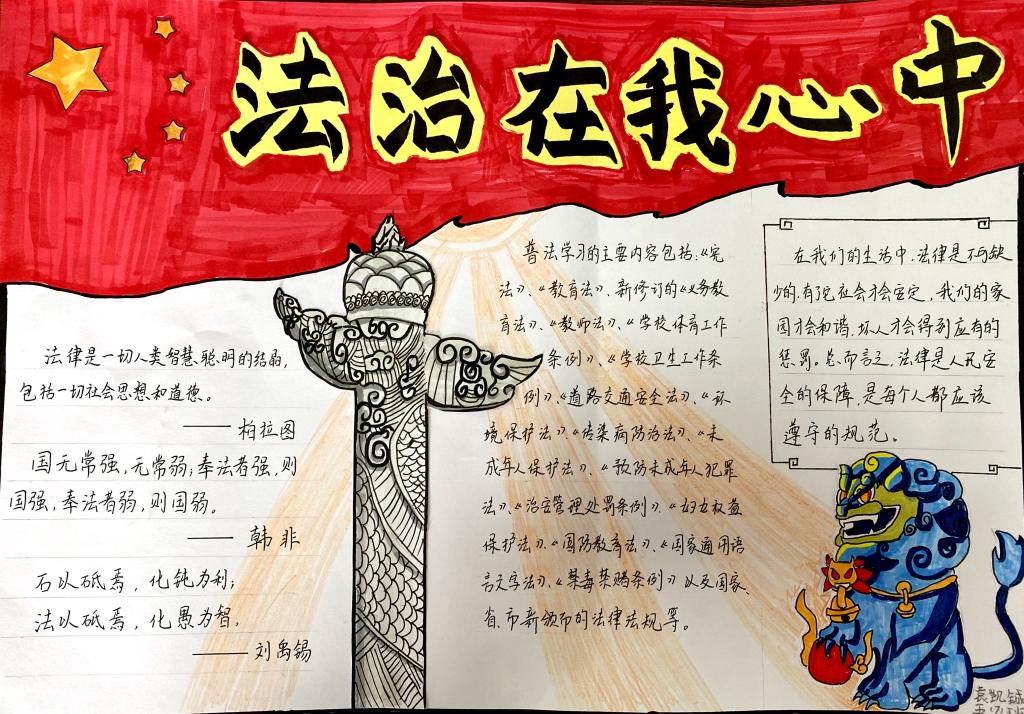 法治在我心中
法律是一切人类智慧聪明的结晶,
包括一切社会思想和道德。
——柏拉图
国无常强,无常弱;奉法者强,则
国强,奉法者弱,则国弱。
——韩非
石以砥焉,化钝为利;
法以砥焉,化愚为智。
——刘禹锡
普法学习的主要内容包括:《宪
法》、《教育法》、新修订的《义务教
育法》、《教师法》、《学校体育工作
条例》、《学校卫生工作条
例》、《道路交通安全法》、《环
境保护法》、《传染病防治法》、《未
成年人保护法》、《预防未成年人犯罪
法》、《治安管理处罚条例》、《妇女权益
保护法》、《国防教育法》、《国家通用语
言文字法》、《禁毒禁赌条例》以及国家、
省、市新颁布的法律法规等。
在我们的生活中,法律是不可缺
少的,有它社会才会安定,我们的家
园才会和谐,坏人才会得到应有的
惩罚。总而言之,法律是人民安
全的保障,是每个人都应该
遵守的规范。
袁凯铖